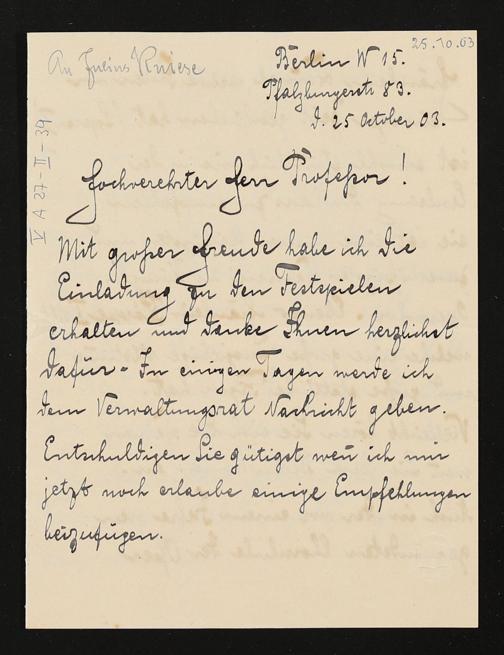 25.10.03
An Julius Kniese
Berlin W 15.
Pfalzburgerstr 83.
d. 25 October 03.
V A 27-II-39
Hochverehrter Herr Profeßor!
Mit großer Freude habe ich die
Einladung zu den Festspielen
erhalten und danke Ihnen herzlichst
dafür - In einigen Tagen werde ich
dem Verwaltungsrat Nachricht geben.
Entschuldigen Sie gütigst weñ ich mir
jetzt noch erlaube einige Empfehlungen
beizufügen.